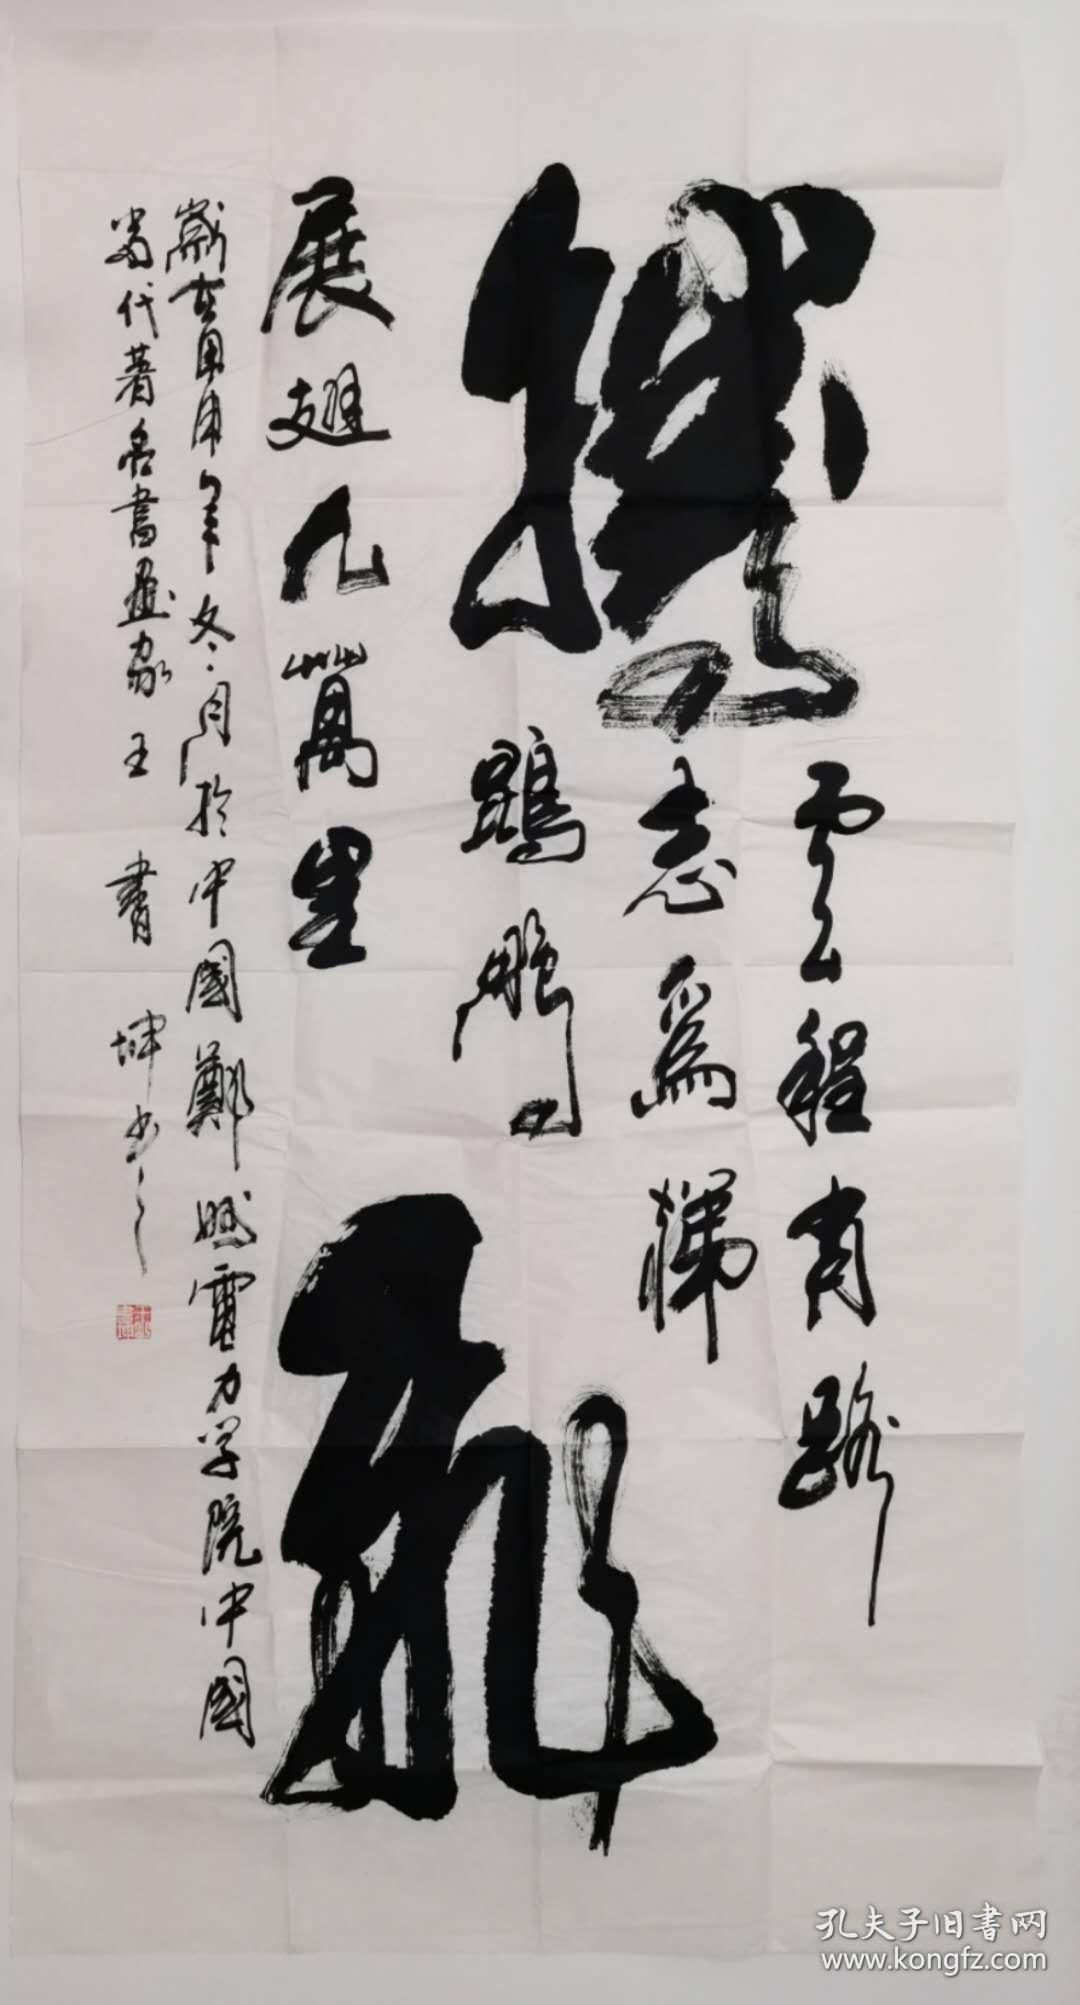 腾
云程有路
志为梯
鹍鹏
飞
展翅九萬里
歲在甲申年冬月於中國鄭州電力学院中國
当代著名書画家王書坤书之
孔夫子旧書网
www.kongfz.com